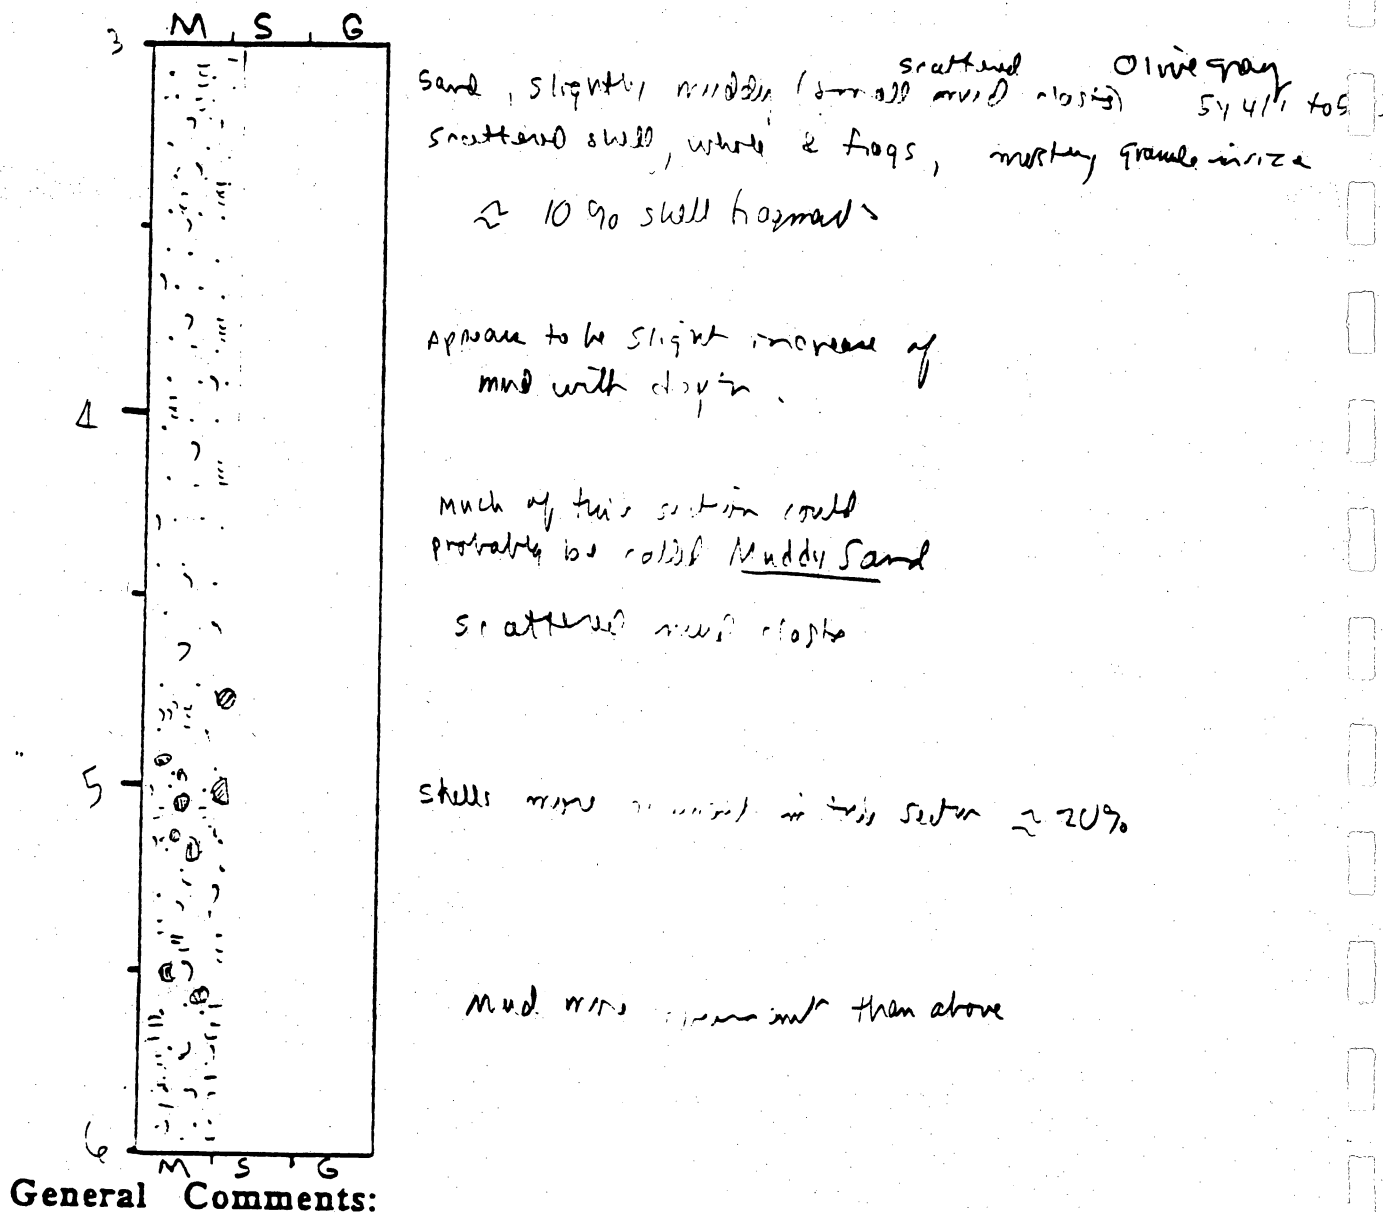 M S G
3
scattered Olive gray
Sand, slightly muddy (small mud clasts) 5Y 4/1 to 5
scattered shell, whole & frags, mostly granule in size
≈ 10% shell fragments
Appears to be slight increase of
mud with depth.
4
Much of this section could
probably be called Muddy Sand
scattered mud clasts
5
Shells more in this section ≈ 20%
Mud more than above
6
M S G
General Comments: